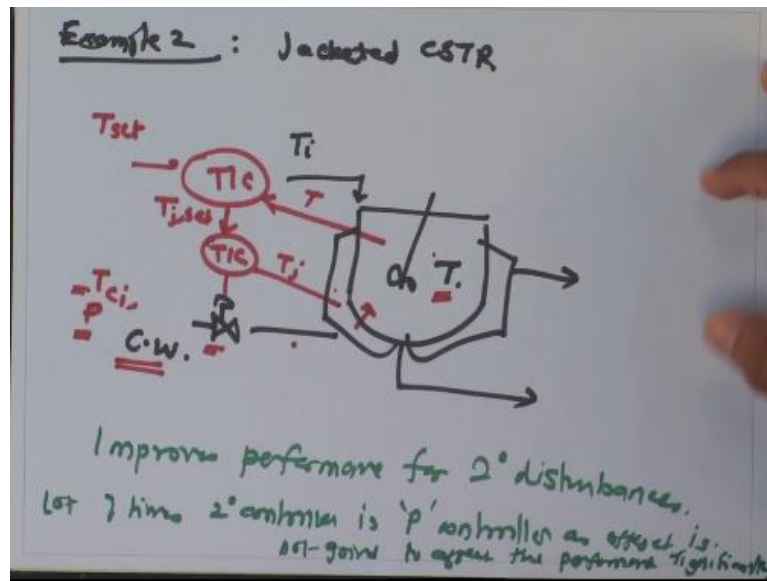 Example 2 : Jacketed CSTR
Tset
Ti
TIC
T
Tj,set
TIC
Tj
T.
Tci,
P
C.W.
Improves performance for 2° disturbances.
Lot of times 2° controller is 'P' controller as offset is
not going to affect the performance significantly